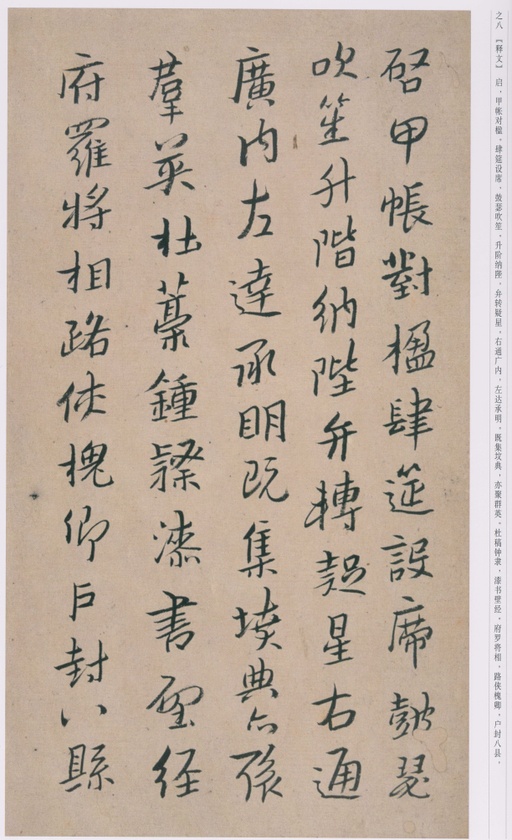 之八 【释文】 启，甲帐对楹。肆筵设席，鼓瑟吹笙。升阶纳陛，弁转疑星。右通广内，左达承明。既集坟典，亦聚群英。杜稿钟隶，漆书壁经。府罗将相，路侠槐卿。户封八县，
启甲帳對楹肆筵設席皷瑟
吹笙升階納陛弁轉疑星右通
廣内左達承明既集墳典亦聚
羣英杜藁鍾隸漆書壁經
府羅將相路俠槐卿户封八縣